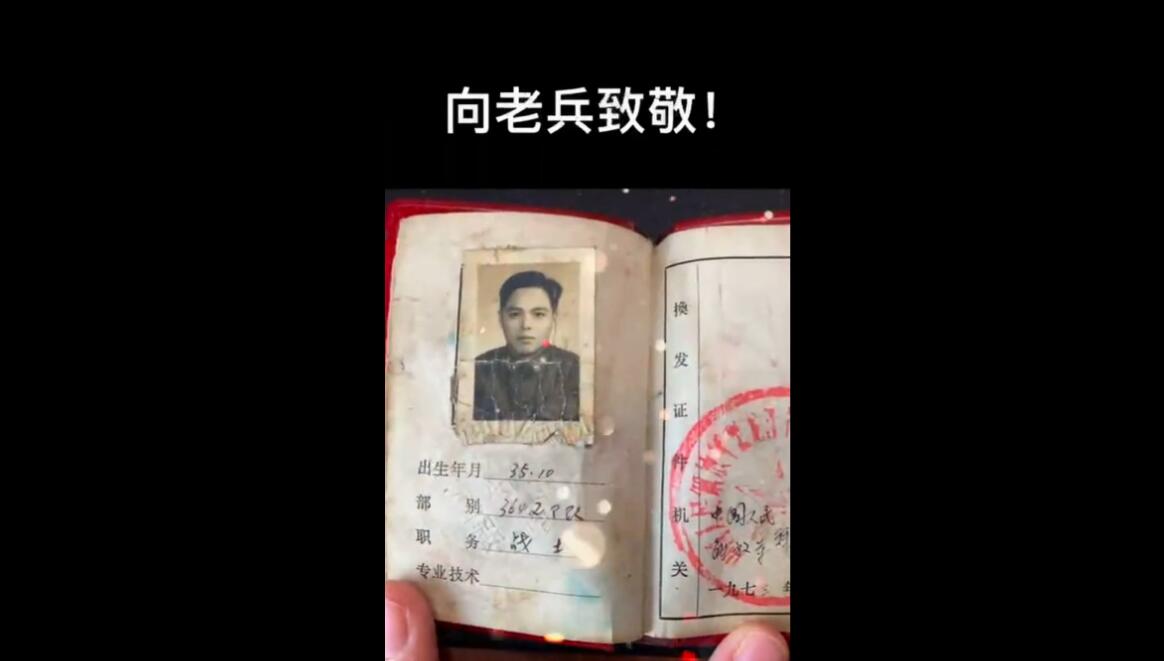 向老兵致敬！
出生年月 35.10
部别
职务 战士
专业技术
换发证件机关
中国人民
解放军
一九七三年